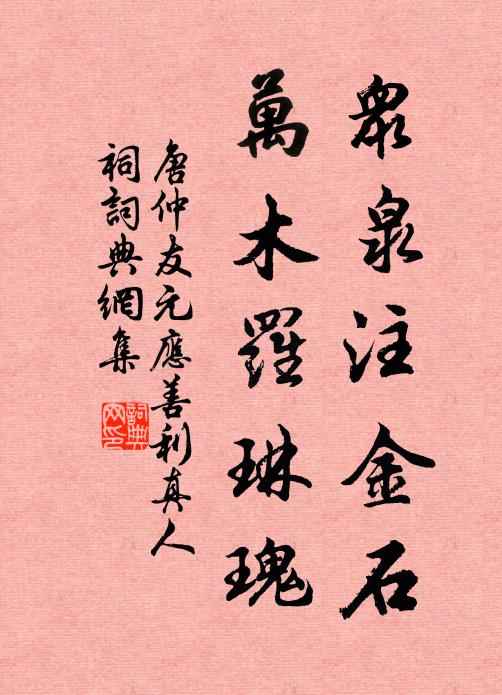 衆泉注金石
萬木羅琳瑰
唐仲友元應善利真人
祠詞典網集
詞典网印